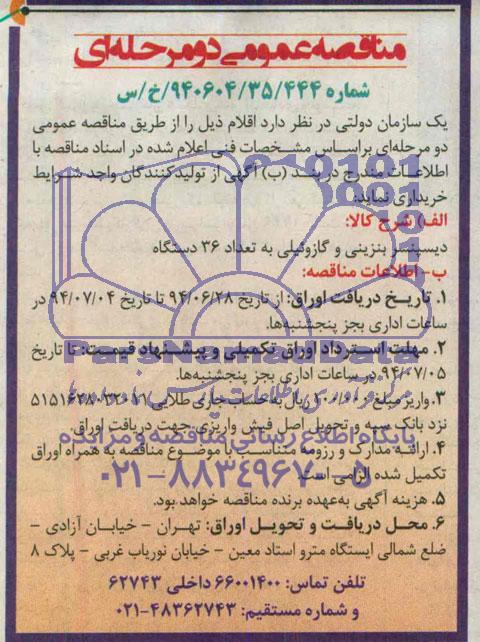 مناقصه عمومی دو مرحله‌ای
شماره ۹۴۰۶۰۴/۳۵/۴۴۴/خ/س
یک سازمان دولتی در نظر دارد اقلام ذیل را از طریق مناقصه عمومی
دو مرحله‌ای براساس مشخصات فنی اعلام شده در اسناد مناقصه با
اطلاعات مندرج در بند (ب) آگهی از تولیدکنندگان واجد شرایط
خریداری نماید:
الف) شرح کالا:
دیسپنسر بنزینی و گازوئیلی به تعداد ۳۶ دستگاه
ب- اطلاعات مناقصه:
۱. تاریخ دریافت اوراق: از تاریخ ۹۴/۰۶/۲۸ تا تاریخ ۹۴/۰۷/۰۴ در
ساعات اداری بجز پنجشنبه‌ها.
۲. مهلت استرداد اوراق تکمیلی و پیشنهاد قیمت: تا تاریخ
۹۴/۰۷/۰۵ در ساعات اداری بجز پنجشنبه‌ها.
۳. واریز مبلغ ریال به حساب جاری طلایی
نزد بانک سپه و تحویل اصل فیش واریزی جهت دریافت اوراق.
پایگاه اطلاع رسانی مناقصه و مزایده
۴. ارائه مدارک و رزومه متناسب با موضوع مناقصه به همراه اوراق
تکمیل شده الزامی است.
۰۲۱-۸۸۳۴۹۶۷۰-۵
۵. هزینه آگهی به‌عهده برنده مناقصه خواهد بود.
۶. محل دریافت و تحویل اوراق: تهران - خیابان آزادی -
ضلع شمالی ایستگاه مترو استاد معین - خیابان نوریاب غربی - پلاک ۸
تلفن تماس: ۶۶۰۰۱۴۰۰ داخلی ۶۲۷۴۳
و شماره مستقیم: ۴۸۳۶۲۷۴۳-۰۲۱